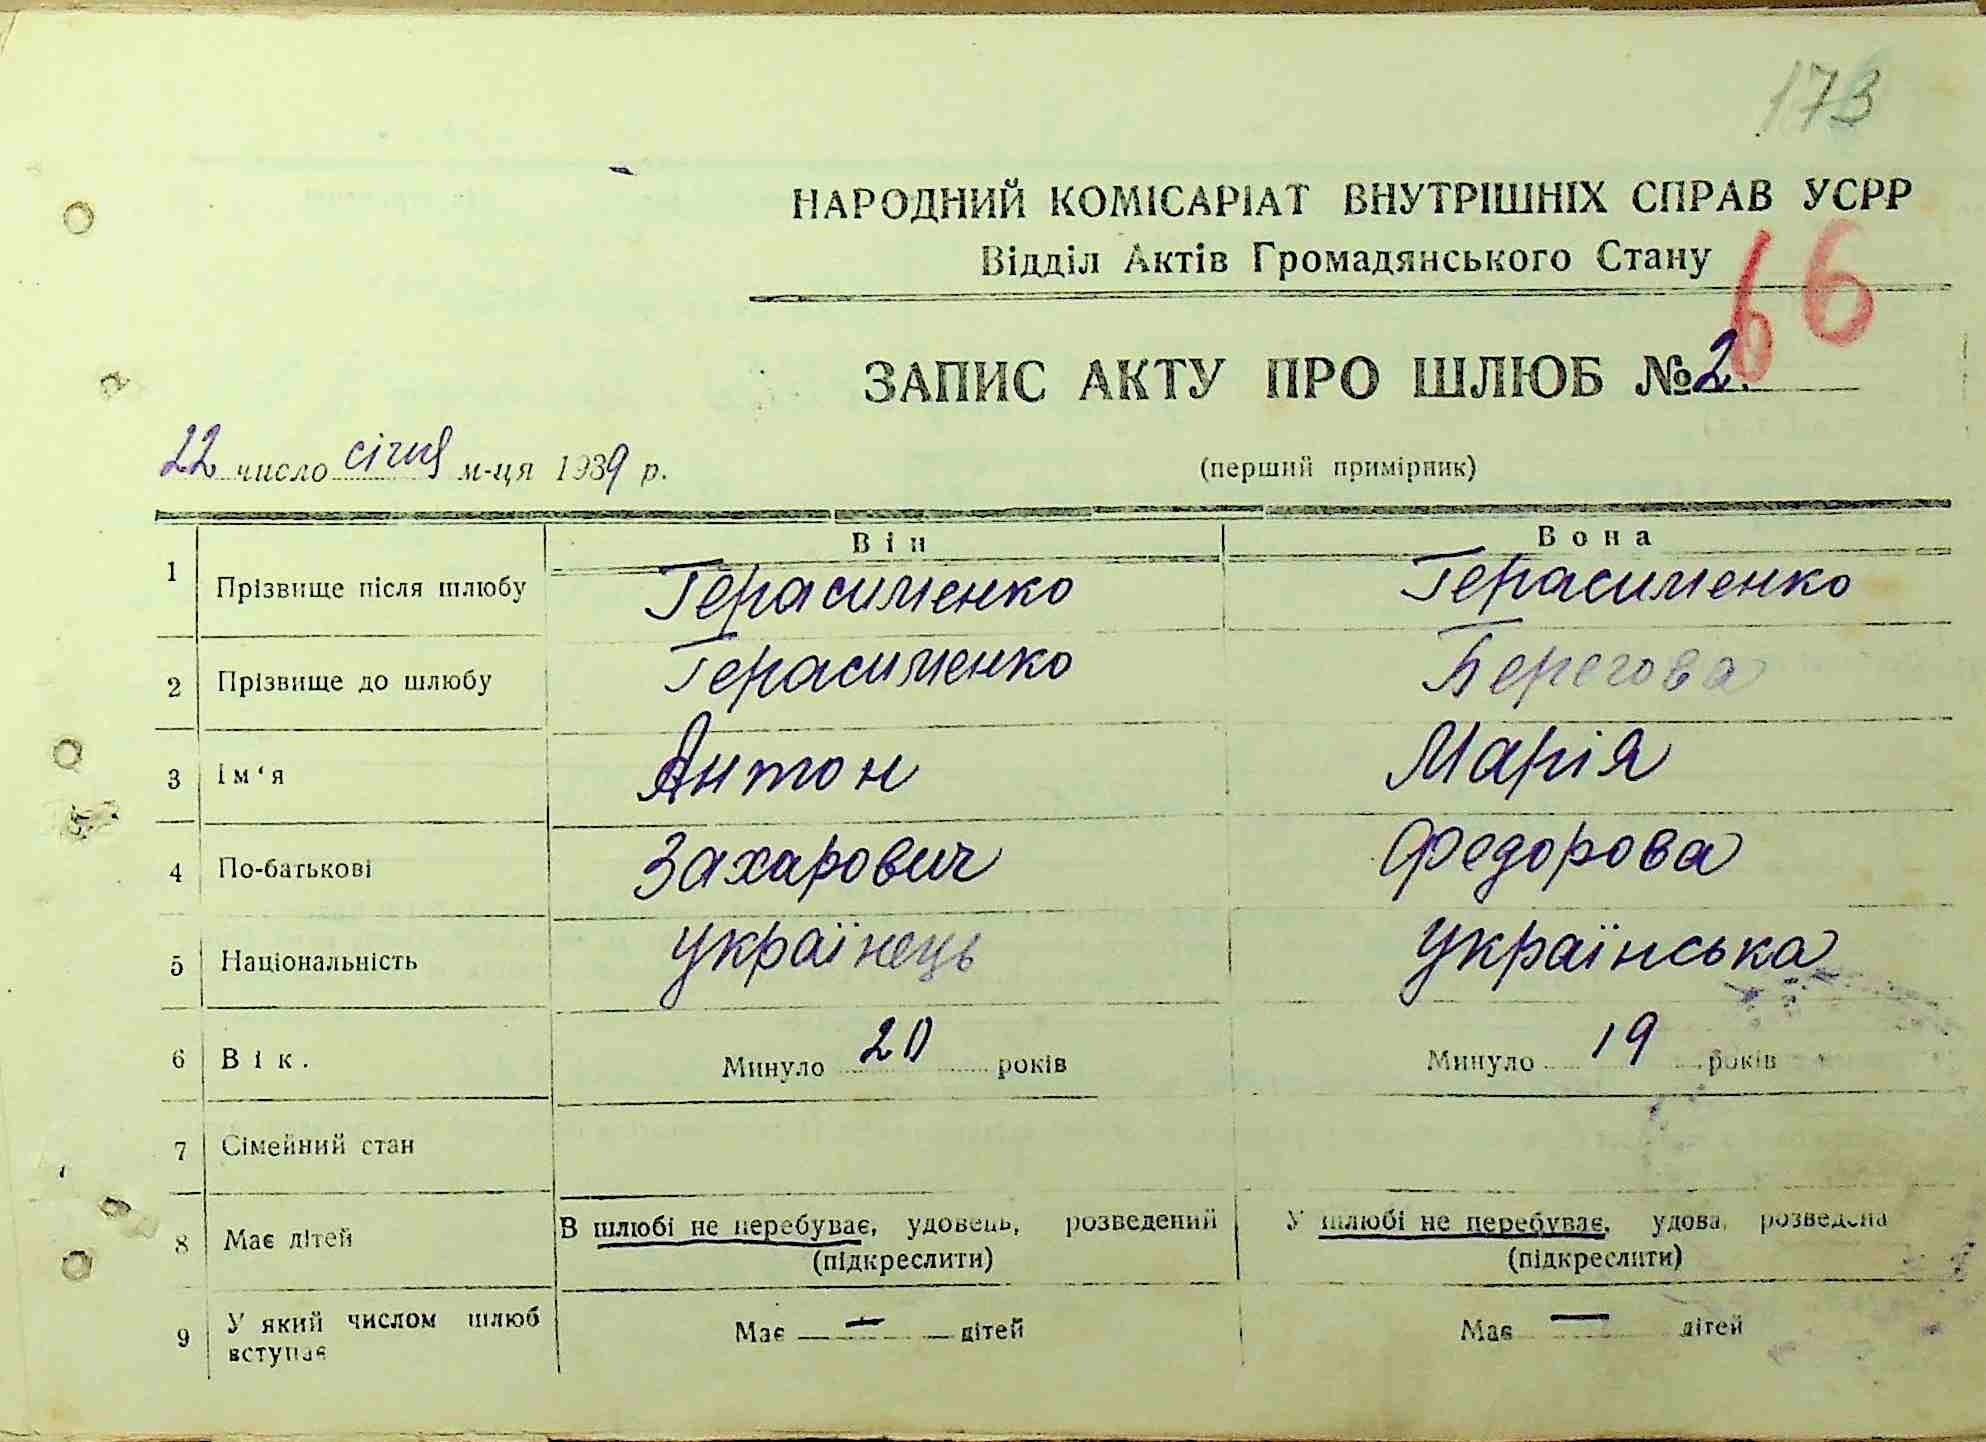 173
НАРОДНИЙ КОМІСАРІАТ ВНУТРІШНІХ СПРАВ УСРР
Відділ Актів Громадянського Стану
66
ЗАПИС АКТУ ПРО ШЛЮБ № 2.
22 число січня м-ця 1939 р.
(перший примірник)
Він Вона
1 Прізвище після шлюбу Герасименко Герасименко
2 Прізвище до шлюбу Герасименко Берегова
3 Ім'я Антон Марія
4 По-батькові Захарович Федорова
5 Національність Українець Українська
6 Вік. Минуло 20 років Минуло 19 років
7 Сімейний стан
8 Має дітей В шлюбі не перебуває, удовець, розведений У шлюбі не перебуває, удова, розведена
(підкреслити) (підкреслити)
9 У який числом шлюб вступає Має — дітей Має — дітей